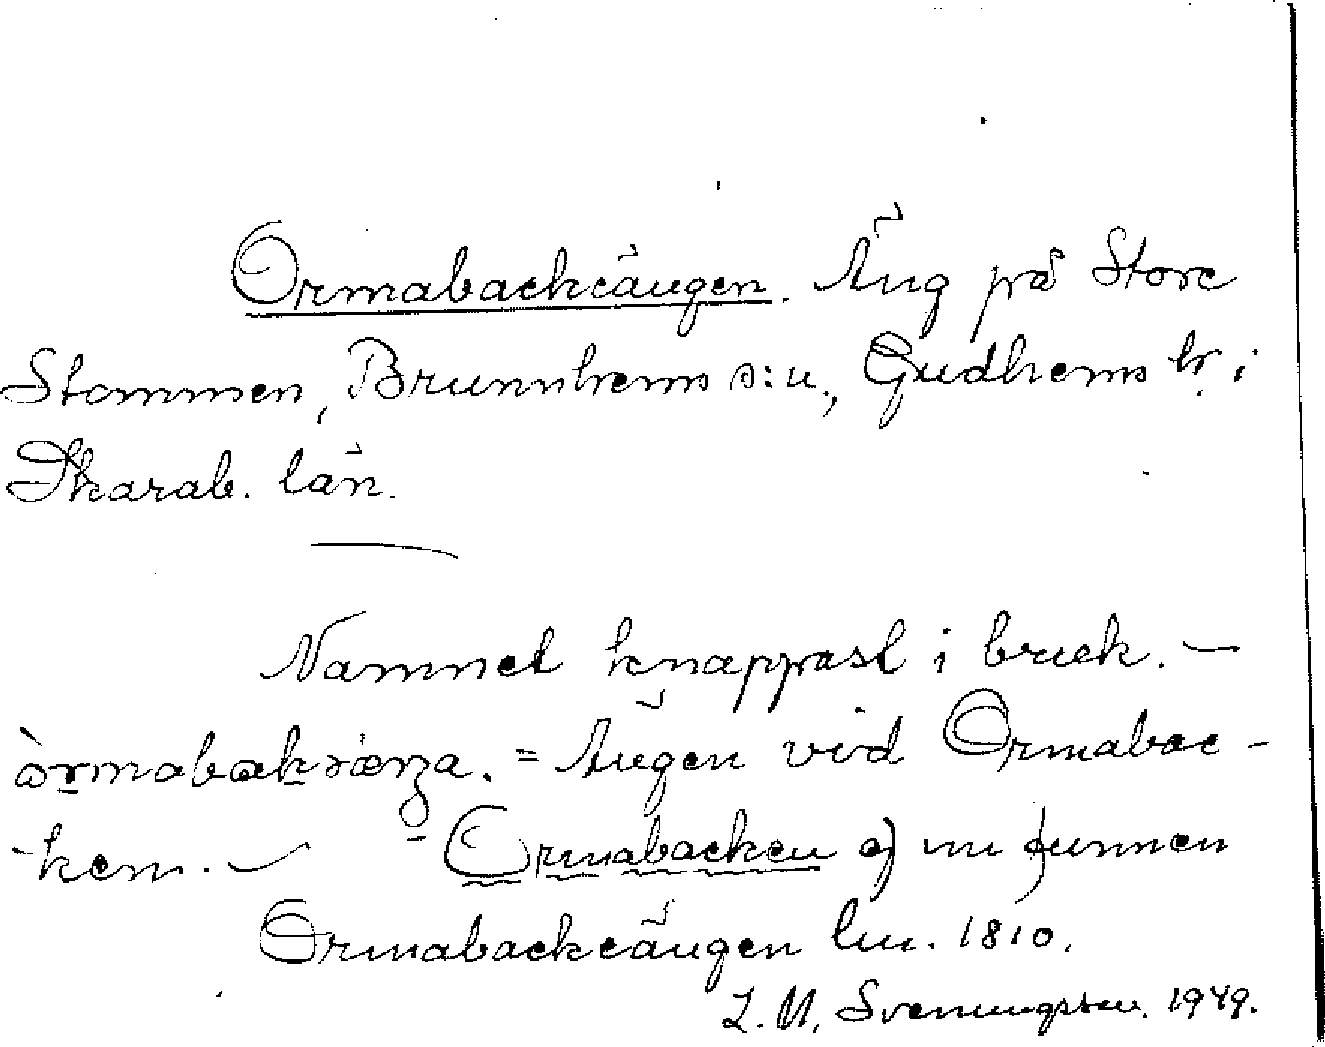 Ormabackeängen. Äng på Store
Stommen, Brunnhems s:n, Gudhems hr. i
Skarab. län.
Namnet knappast i bruk. —
= Ängen vid Ormabac-
-ken. — Ormabacken ej nu funnen
Ormabackeängen lm. 1810.
L. M. Svenungsson. 1949.